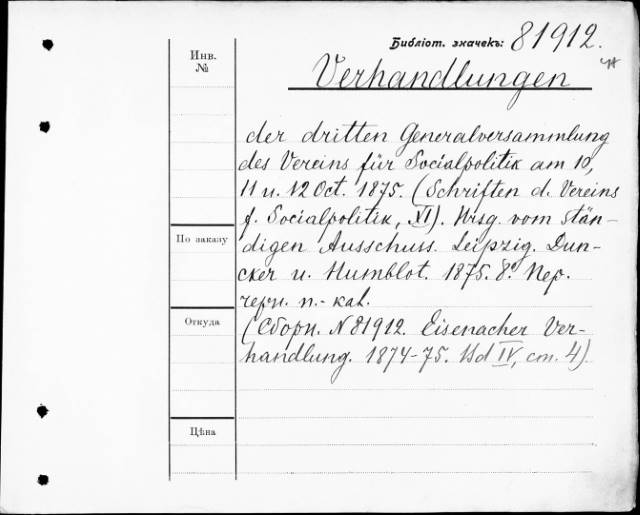 Библіот. значекъ: 81912.
Инв. №
Verhandlungen
der dritten Generalversammlung
des Vereins für Socialpolitik am 10,
11 u. 12 Oct. 1875. (Schriften d. Vereins
f. Socialpolitik, XI). Hrsg. vom stän-
По заказу
digen Ausschuss. Leipzig. Dun-
cker u. Humblot. 1875. 8º. Пер.
черн. п.- кал.
Откуда
(Сборн. N 81912. Eisenacher Ver-
handlung. 1874-75. Bd IV, ст. 4).
Цѣна